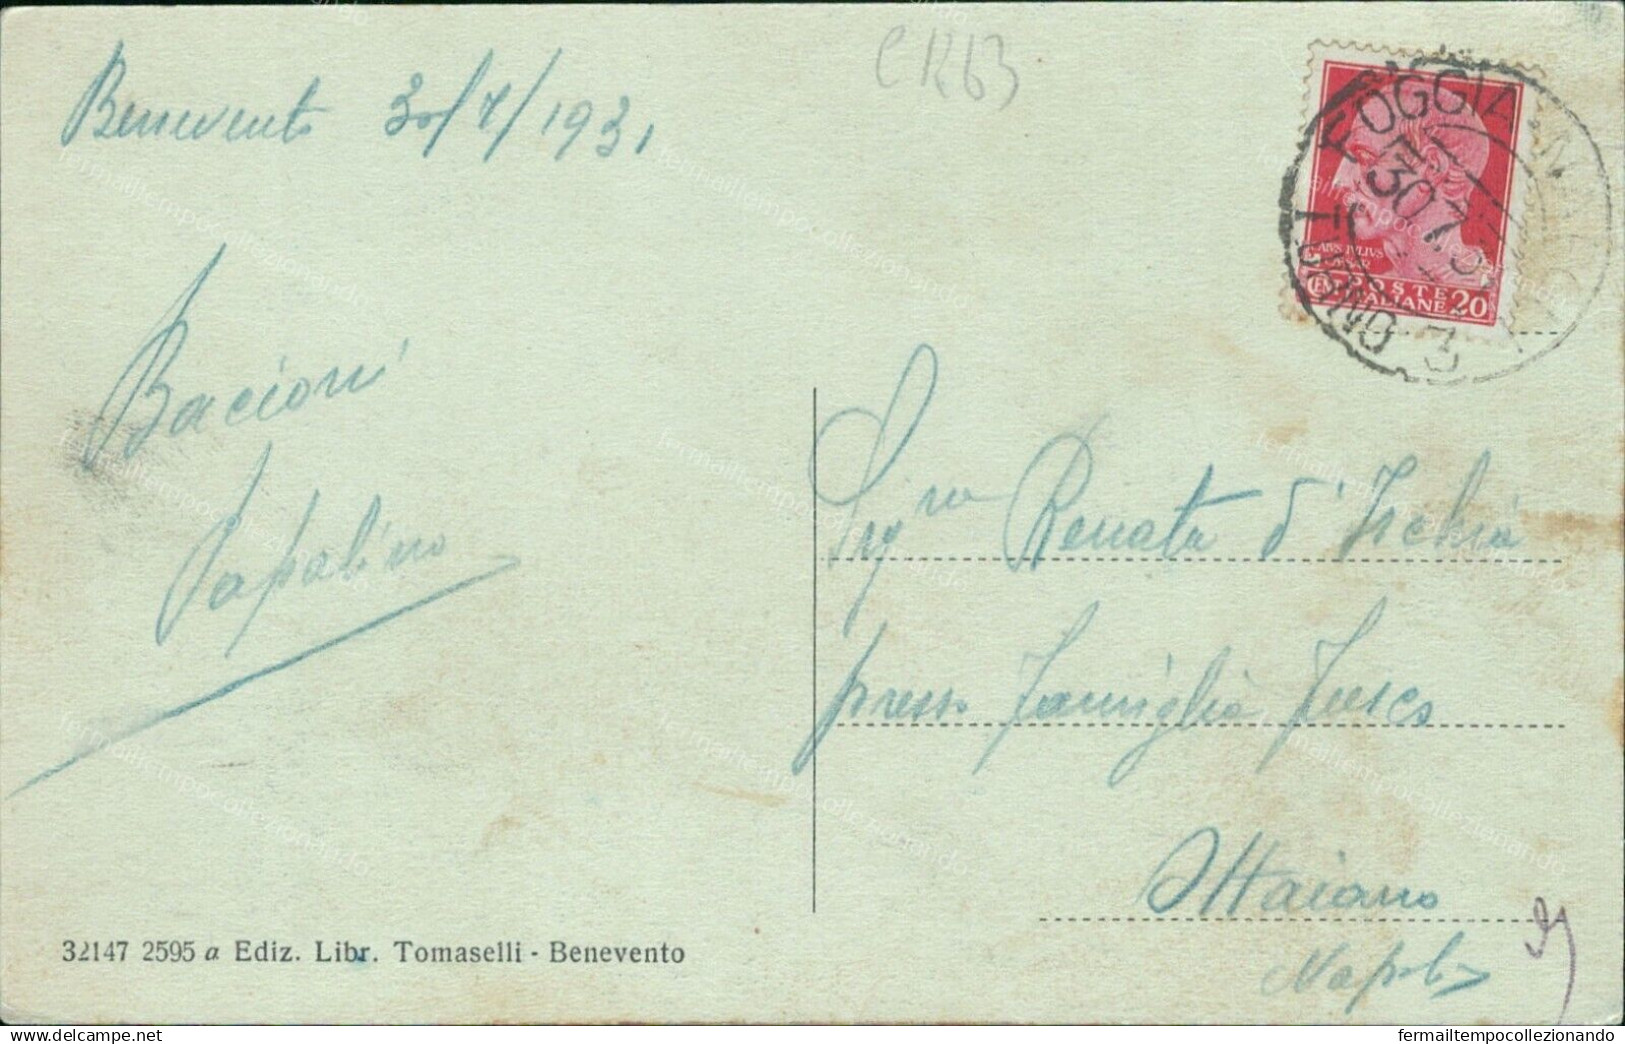 CR63
Benevento 30/7/1931
Bacioni
Papalino
FOGGIA-NAPOLI
30.7.31
3
CAIVS IVLIVS
CAESAR
CENT 20
POSTE
ITALIANE
Sigra Renata d'Ischia
presso Famiglia Fusco
Ottaiano
Napoli
32147 2595 a Ediz. Libr. Tomaselli - Benevento
fermailtempocollezionando